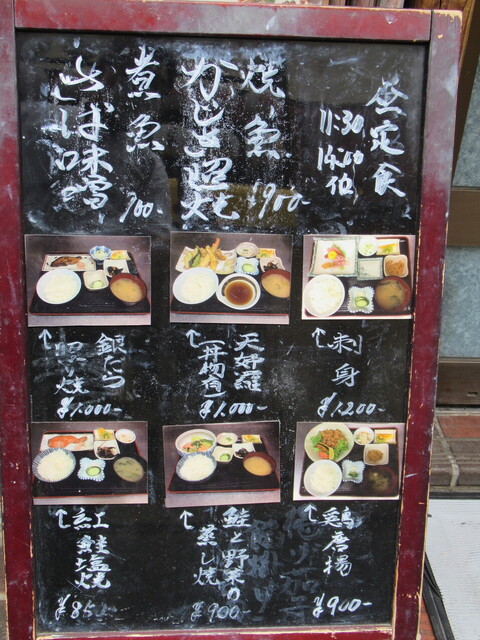 昼定食
11:30
14:00位
焼魚
かじき照焼
¥900-
煮魚
さば味噌
900-
↑刺身
¥1200-
天婦羅
(丼物有)
¥1,000-
銀だら
西京焼
¥1,000-
↑鶏唐揚
¥900-
↑鮭と野菜の
蒸し焼
¥900-
↑紅鮭塩焼
¥850-